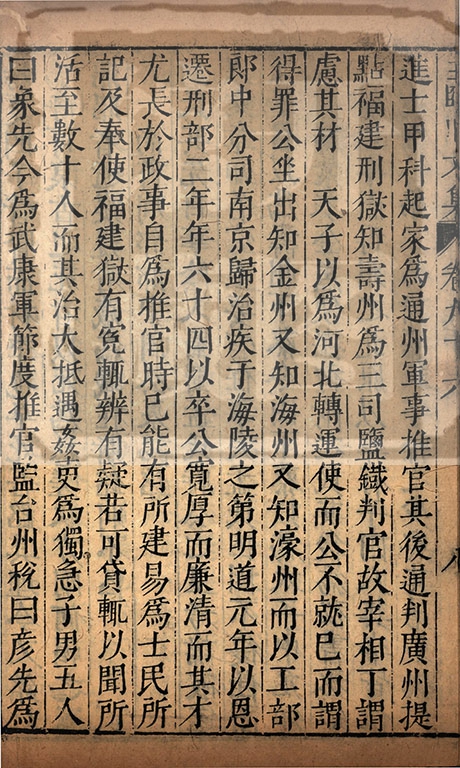 王臨川文集 卷九十六 八
進士甲科起家爲通州軍事推官其後通判廣州提
點福建刑獄知壽州爲三司鹽鐵判官故宰相丁謂
慮其材 天子以爲河北轉運使而公不就已而謂
得罪公坐出知金州又知海州又知濠州而以工部
郎中分司南京歸治疾于海陵之第明道元年以恩
遷刑部二年年六十四以卒公寬厚而廉清而其才
尤長於政事自爲推官時已能有所建易爲士民所
記及奉使福建獄有寃輒辨有疑若可貸輒以聞所
活至數十人而其治大抵遇姦吏爲獨急子男五人
曰象先今爲武康軍節度推官監台州稅曰彦先爲